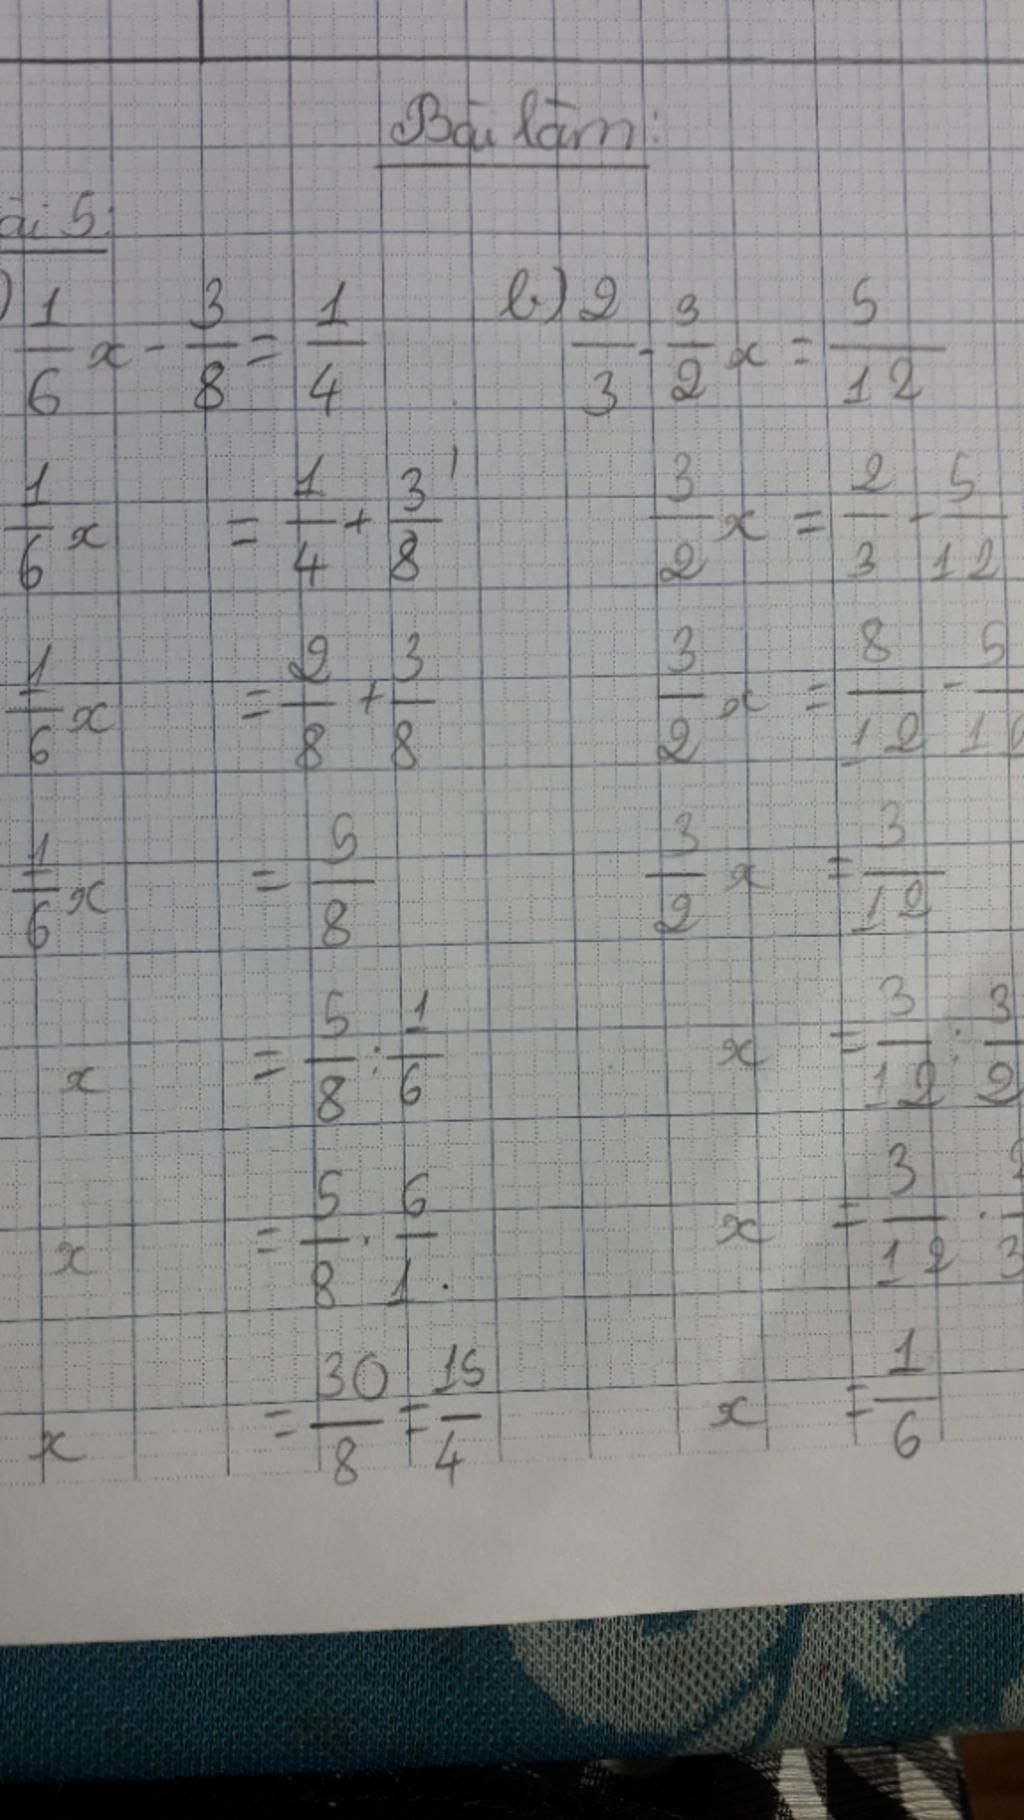 Bài làm:
ài 5:
) 1/6 x - 3/8 = 1/4
1/6 x = 1/4 + 3/8
1/6 x = 2/8 + 3/8
1/6 x = 5/8
x = 5/8 : 1/6
x = 5/8 . 6/1
x = 30/8 = 15/4
b) 2/3 - 3/2 x = 5/12
3/2 x = 2/3 - 5/12
3/2 x = 8/12 - 5/1
3/2 x = 3/12
x = 3/12 : 3/2
x = 3/12 . 2/3
x = 1/6